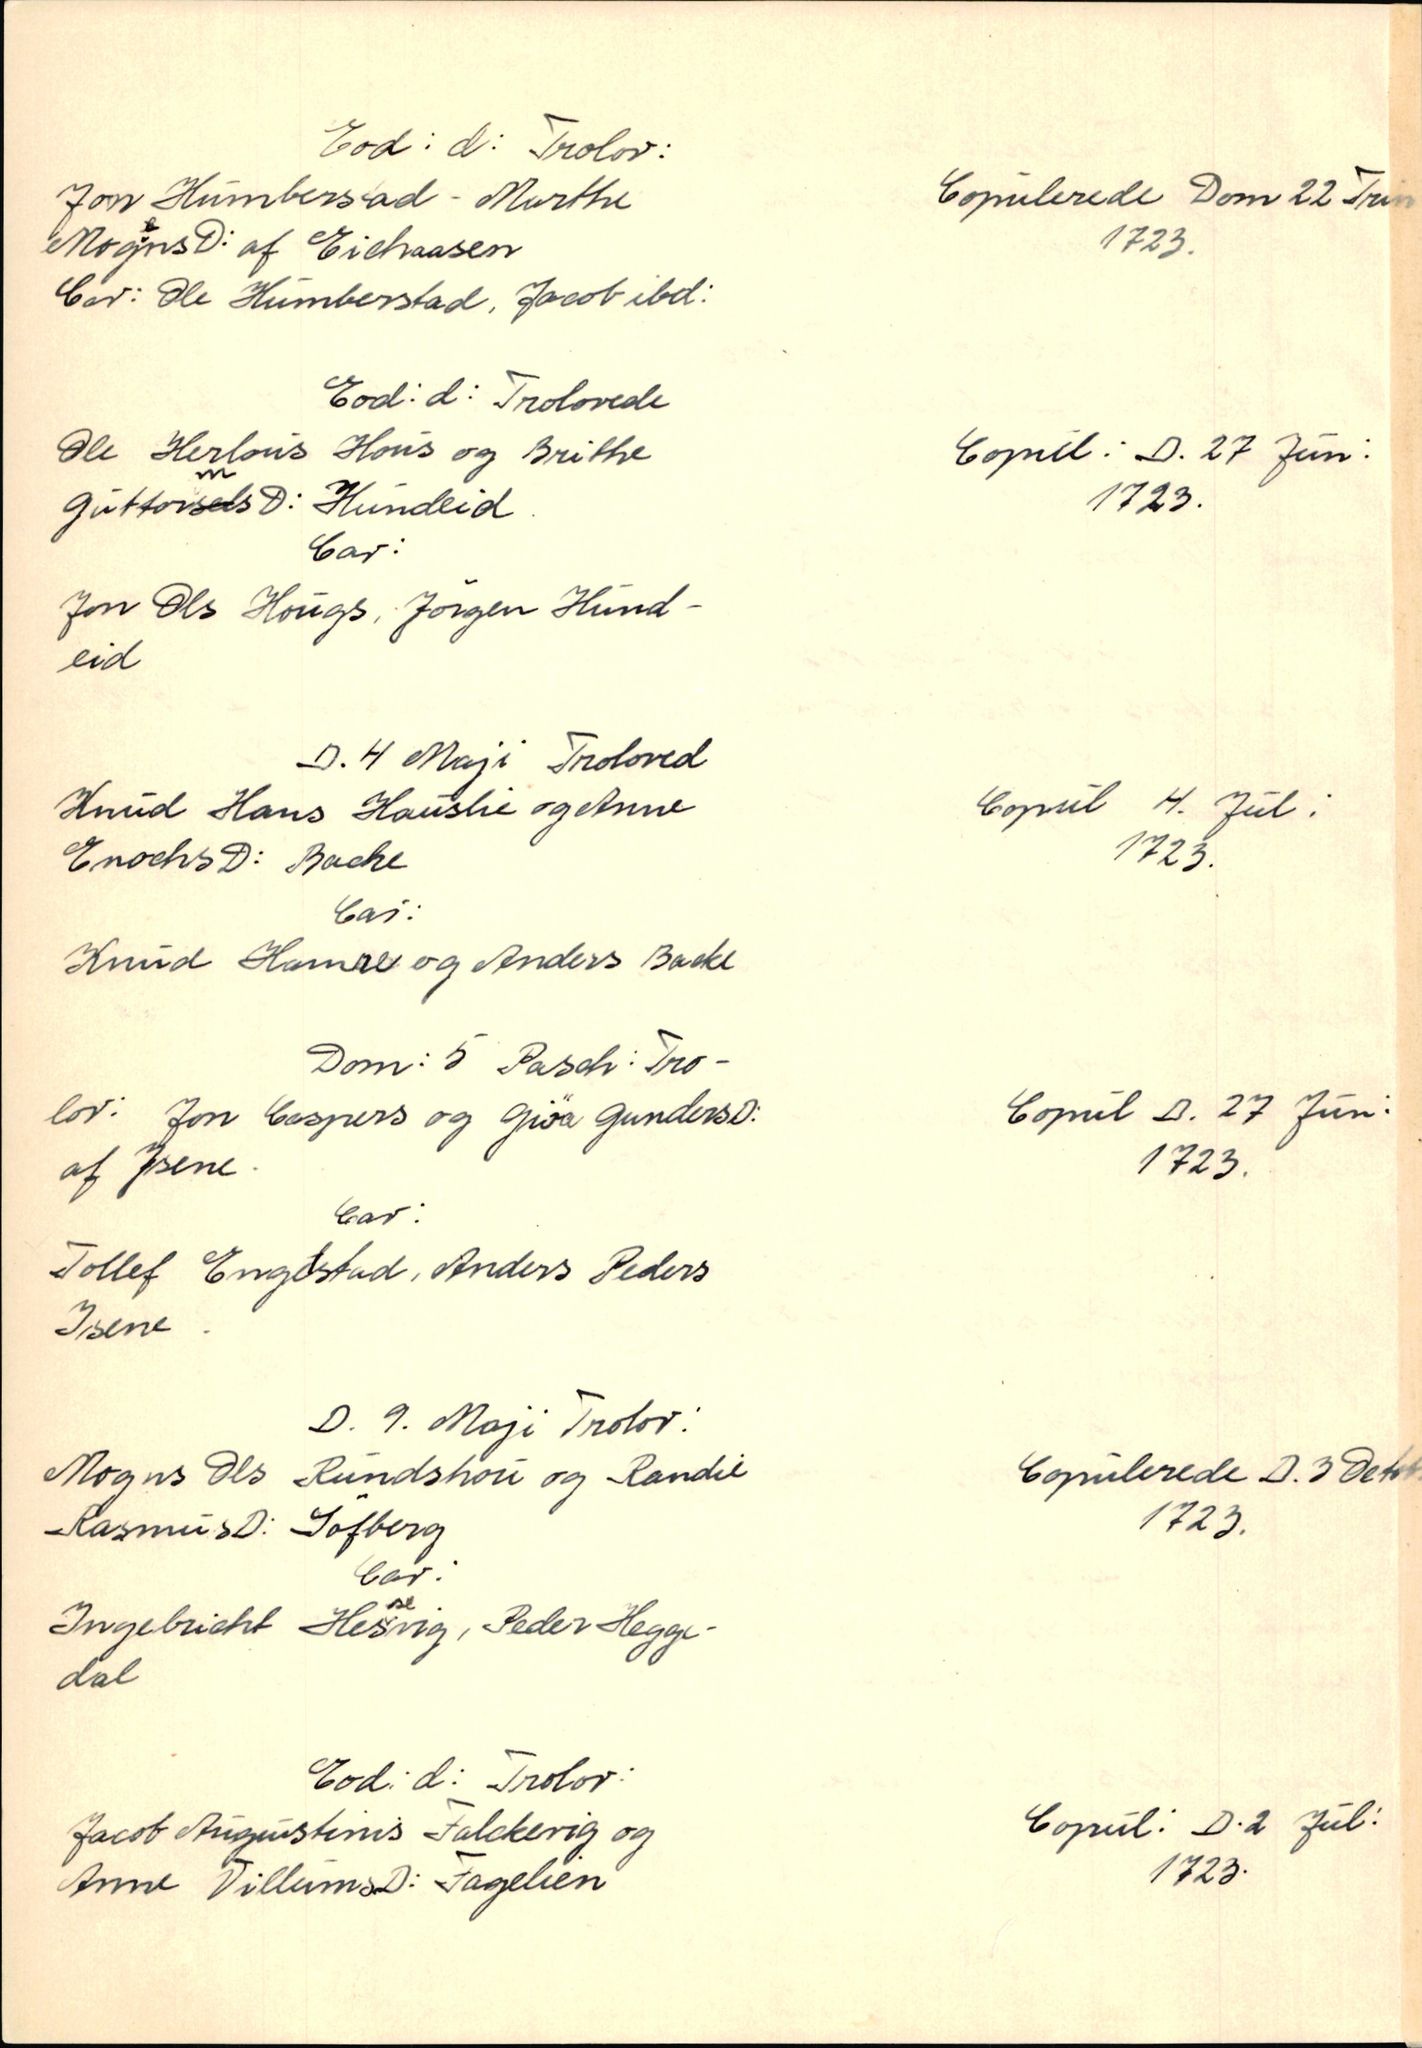 Eod: d: Trolov:
Jon Humberstad - Marthe
MognsD: af Eichaasen
Cav: Ole Humberstad, Jacob ibd:
Copulerede Dom 22 Trin
1723.
Eod: d: Trolovede
Ole Herlous Hous og Brithe
GuttormsD: Hundeid.
Cav:
Jon Ols Hougs, Jörgen Hund-
eid
Copul: D. 27 Jun:
1723.
D. 4 Maji Troloved
Knud Hans Hauslie og Anne
EnochsD: Backe
Cav:
Knud Hamre og Anders Backe
Copul 4. Jul:
1723.
Dom: 5 Pasch: Tro-
lov: Jon Caspers og Giöa GundersD:
af Isene.
Cav:
Tollef Engestad, Anders Peders
Isene.
Copul D. 27 Jun:
1723.
D. 9. Maji Trolov:
Mogns Ols Rundshou og Randie
RasmusD: Söfberg
Cav:
Ingebricht Hesevig, Peder Hegge-
dal
Copulerede D. 3 Octob
1723.
Eod: d: Trolov:
Jacob Augustinis Falckevig og
Anne VillumsD: Fagelien
Copul: D. 2 Jul:
1723.